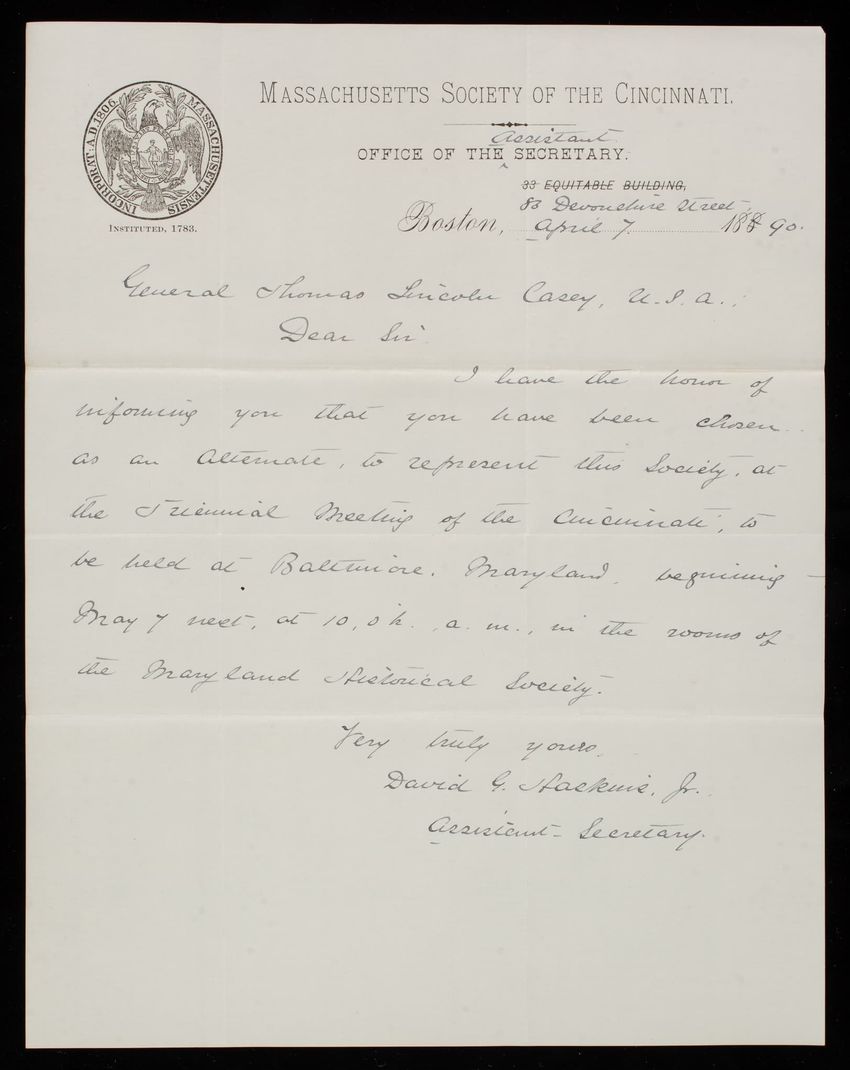 MASSACHUSETTS SOCIETY OF THE CINCINNATI.
Assistant
OFFICE OF THE SECRETARY.
33 EQUITABLE BUILDING,
83 Devonshire Street,
Boston, April 7. 1890.
INCORPORAT. A.D. 1806. MASSACHUSETTENSIS
INSTITUTED, 1783.
General Thomas Lincoln Casey, U.S.A.;
Dear Sir
I have the honor of
informing you that you have been chosen
as an Alternate, to represent this Society, at
the Triennial Meeting of the Cincinnati, to
be held at Baltimore, Maryland, beginning
May 7 next, at 10, o'k. a. m., in the rooms of
the Maryland Historical Society.
Very truly yours,
David G. Haskins, Jr.
Assistant Secretary.